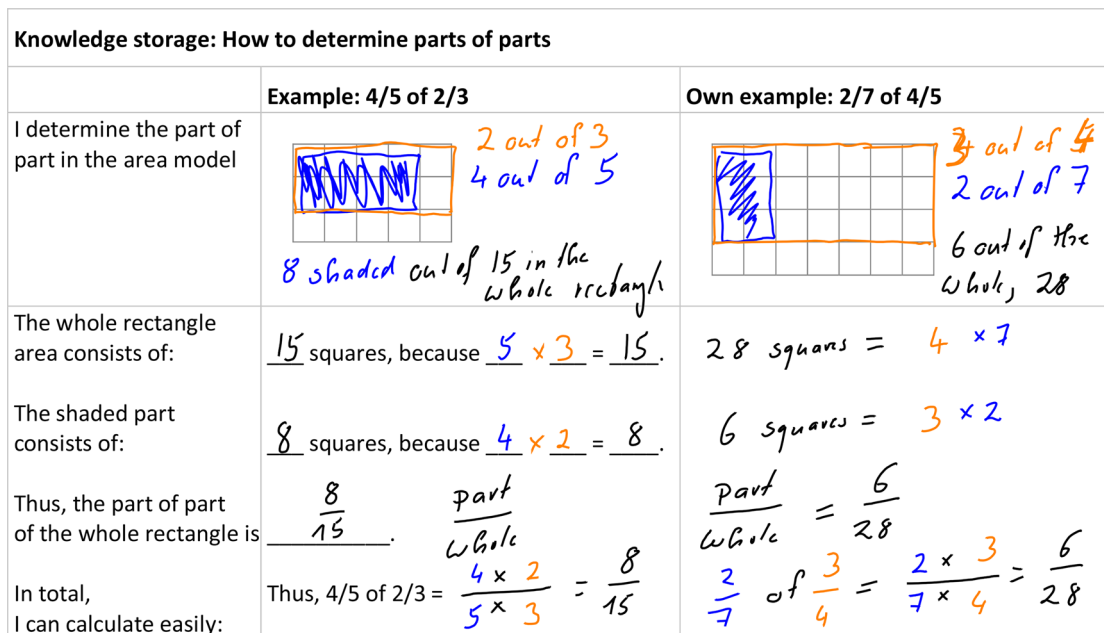 Knowledge storage: How to determine parts of parts
Example: 4/5 of 2/3
Own example: 2/7 of 4/5
I determine the part of
part in the area model
2 out of 3
4 out of 5
8 shaded out of 15 in the
whole rectangle
3 out of 4
2 out of 7
6 out of the
whole, 28
The whole rectangle
area consists of:
15 squares, because 5 × 3 = 15.
28 squares = 4 × 7
The shaded part
consists of:
8 squares, because 4 × 2 = 8.
6 squares = 3 × 2
Thus, the part of part
of the whole rectangle is
8/15.
part/whole
part/whole = 6/28
In total,
I can calculate easily:
Thus, 4/5 of 2/3 = 4 × 2 / 5 × 3 = 8/15
2/7 of 3/4 = 2 × 3 / 7 × 4 = 6/28